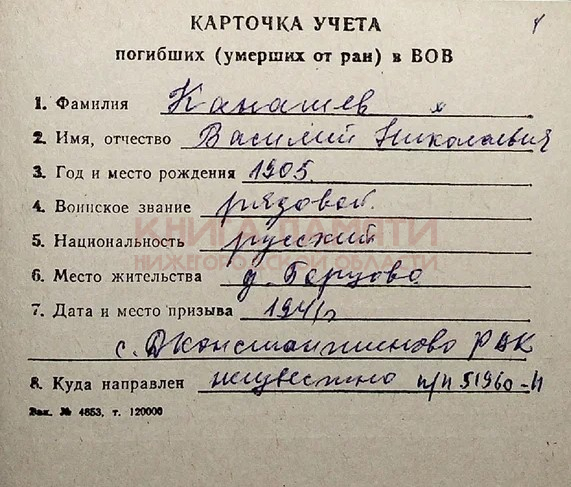 КАРТОЧКА УЧЕТА
погибших (умерших от ран) в ВОВ
1. Фамилия Канашев
2. Имя, отчество Василий Николаевич
3. Год и место рождения 1905
4. Воинское звание рядовой
КНИГА ПАМЯТИ
5. Национальность русский
НИЖЕГОРОДСКОЙ ОБЛАСТИ
6. Место жительства д. Борцово
7. Дата и место призыва 1941г
с. Дконстантиново РВК
8. Куда направлен неизвестно п/п 51960-И
Зак. № 4853, т. 120000